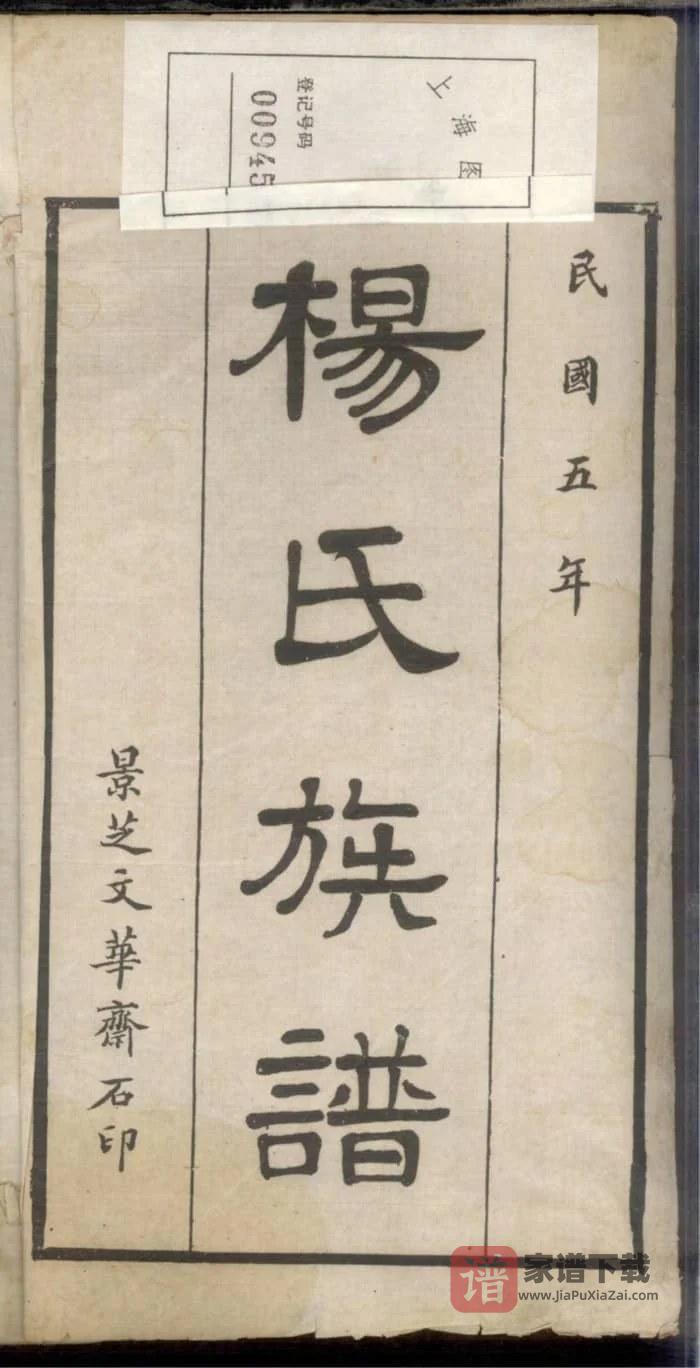 上海图
登记号码
00945
民國五年
楊氏族譜
景芝文華齋石印
谱 家谱下载
www.JiaPuXiaZai.com